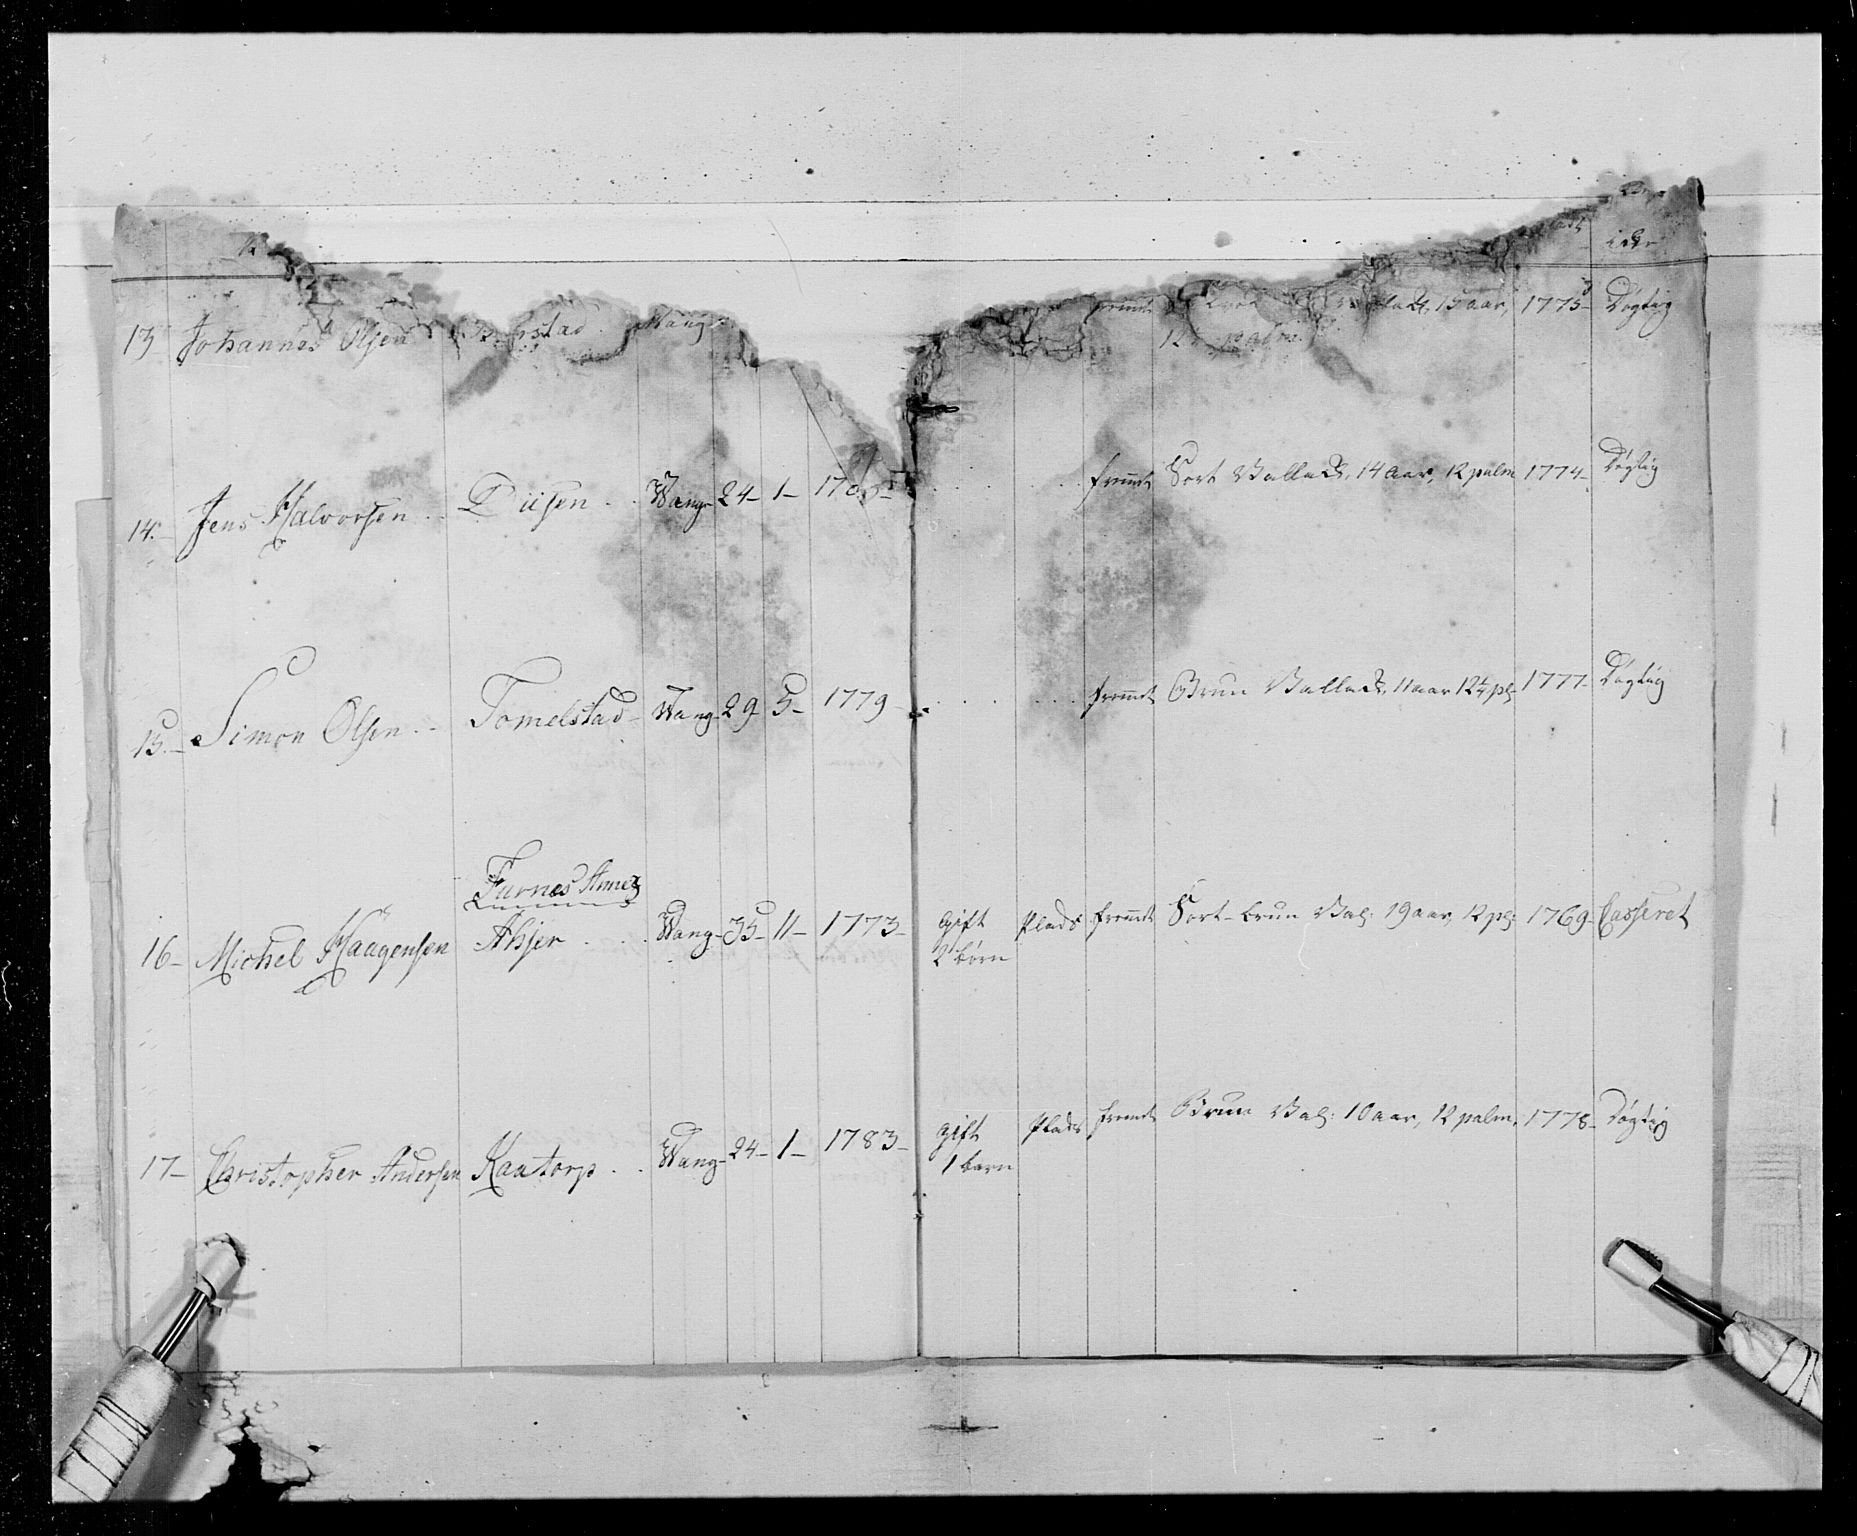 13 Johannes Olsen stad Wang fremdt 15 aar, 1775 Døgtig
12 palm
14. Jens Halvorsen Diisen Wang 24 1 fremdt Sort Vallack, 14 aar, 12 palm 1774 Døgtig
15. Simon Olsen Tomelstad Wang 29 5 1779 fremdt Brun Vallack, 11 aar 12½ pl 1777 Døgtig
Furnes Annex
16 Michel Haagensen Ahjer Wang 35 11 1773 gift Plads fremdt Sort-brun Val: 19 aar, 12 pl: 1769 Casseret
2 børn
17 Christopher Andersen Kaatorp Wang 24 1 1783 gift Plads fremdt Brun Val: 10 aar, 12 palm, 1778 Døgtig
1 barn